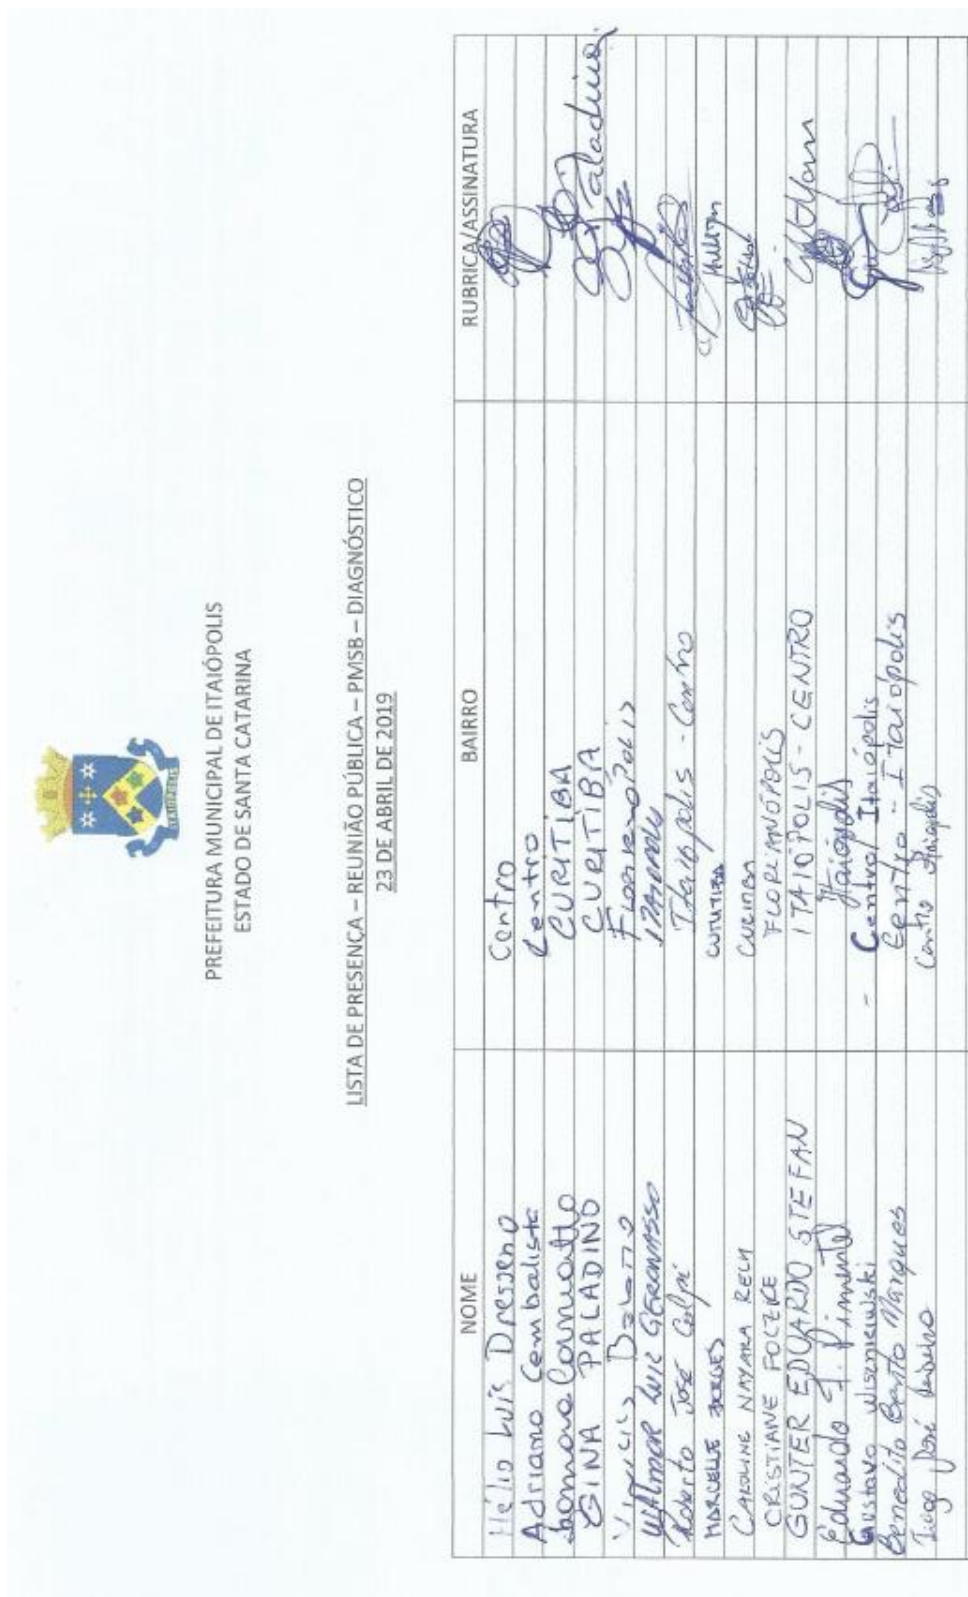 ITAIÓPOLIS
PREFEITURA MUNICIPAL DE ITAIÓPOLIS
ESTADO DE SANTA CATARINA
LISTA DE PRESENÇA – REUNIÃO PÚBLICA – PMSB – DIAGNÓSTICO
23 DE ABRIL DE 2019
NOME BAIRRO RUBRICA/ASSINATURA
Hélio Luis Dresseno Centro
Adriano Cembalista Centro
CURITIBA
GINA PALADINO CURITIBA Paladino
Florianópolis
Roberto José Itaiópolis - Centro
MARCELLE BORGES CURITIBA
CAROLINE NAYARA RECH CURITIBA
CRISTIANE FLORIANÓPOLIS
GUNTER EDUARDO STEFAN ITAIÓPOLIS - CENTRO
Eduardo Pimentel Itaiópolis
Gustavo Wisznieuski - Centro Itaiópolis
Benedito Marques Centro - Itaiópolis
José Centro Itaiópolis